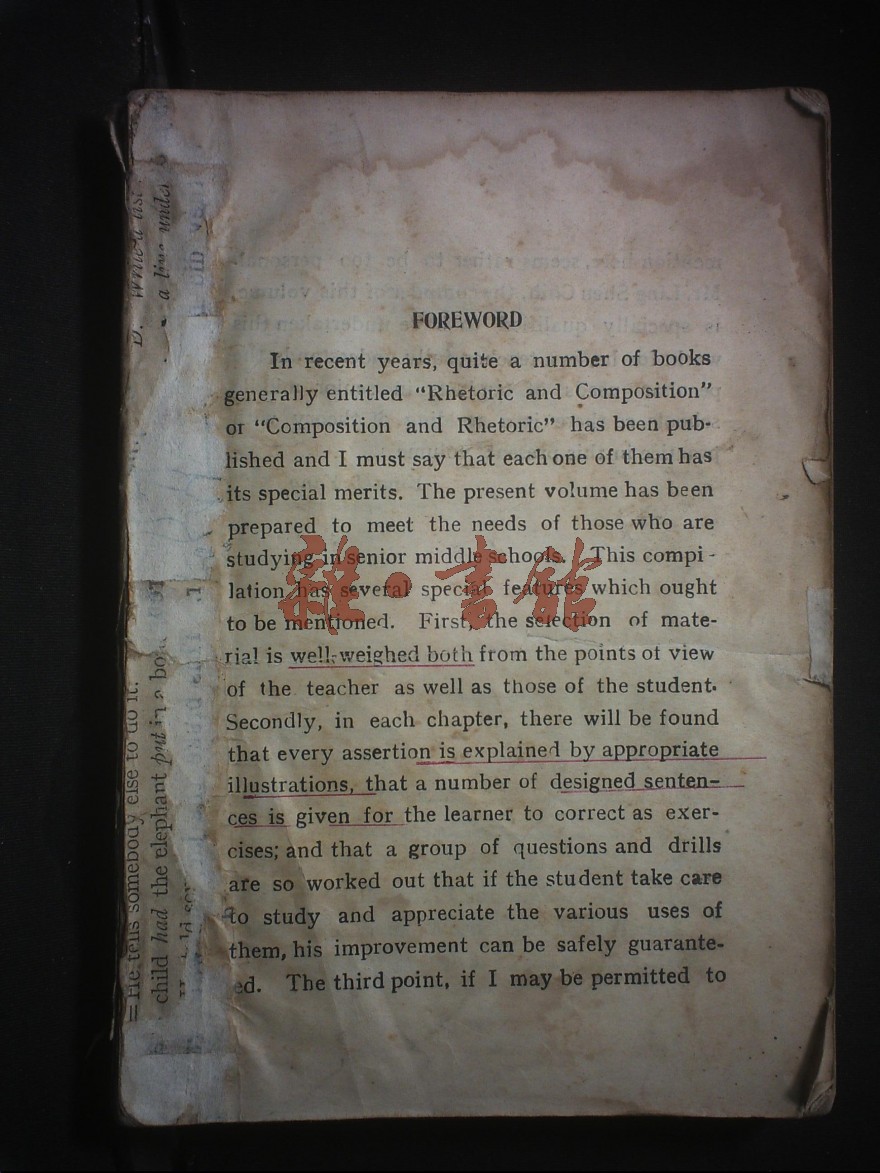 FOREWORD
In recent years, quite a number of books
generally entitled “Rhetoric and Composition”
or “Composition and Rhetoric” has been pub-
lished and I must say that each one of them has
its special merits. The present volume has been
prepared to meet the needs of those who are
studying in senior middle schools. This compi-
lation has several special features which ought
to be mentioned. First, the selection of mate-
rial is well-weighed both from the points of view
of the teacher as well as those of the student.
Secondly, in each chapter, there will be found
that every assertion is explained by appropriate
illustrations, that a number of designed senten-
ces is given for the learner to correct as exer-
cises; and that a group of questions and drills
are so worked out that if the student take care
to study and appreciate the various uses of
them, his improvement can be safely guarante-
ed. The third point, if I may be permitted to
雜·書館
=He tells somebody else to do it.
child had the elephant put in a
a line under